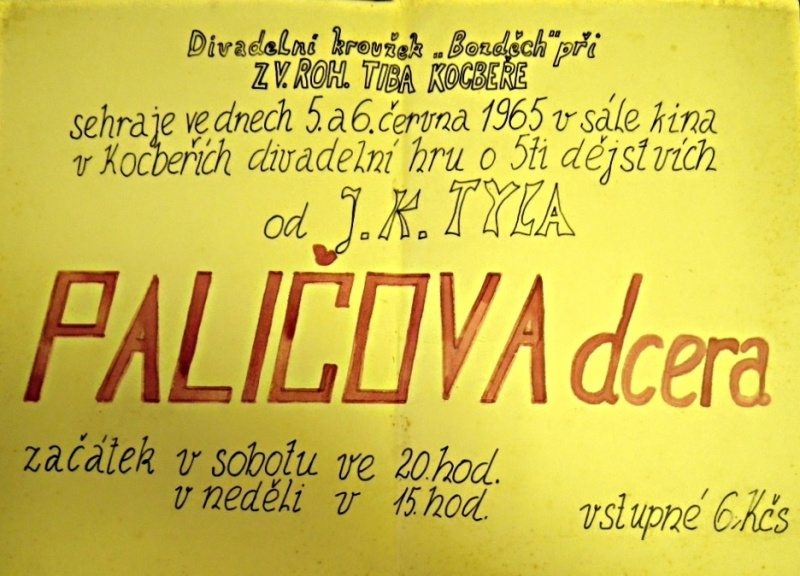 Divadelní kroužek „Bozděch" při
ZV. ROH. TIBA KOCBEŘE
sehraje ve dnech 5. a 6. června 1965 v sále kina
v Kocbeřích divadelní hru o 5ti dějstvích
od J. K. TYLA
PALIČOVA dcera
začátek v sobotu ve 20.hod.
v neděli v 15.hod.
vstupné 6,Kčs